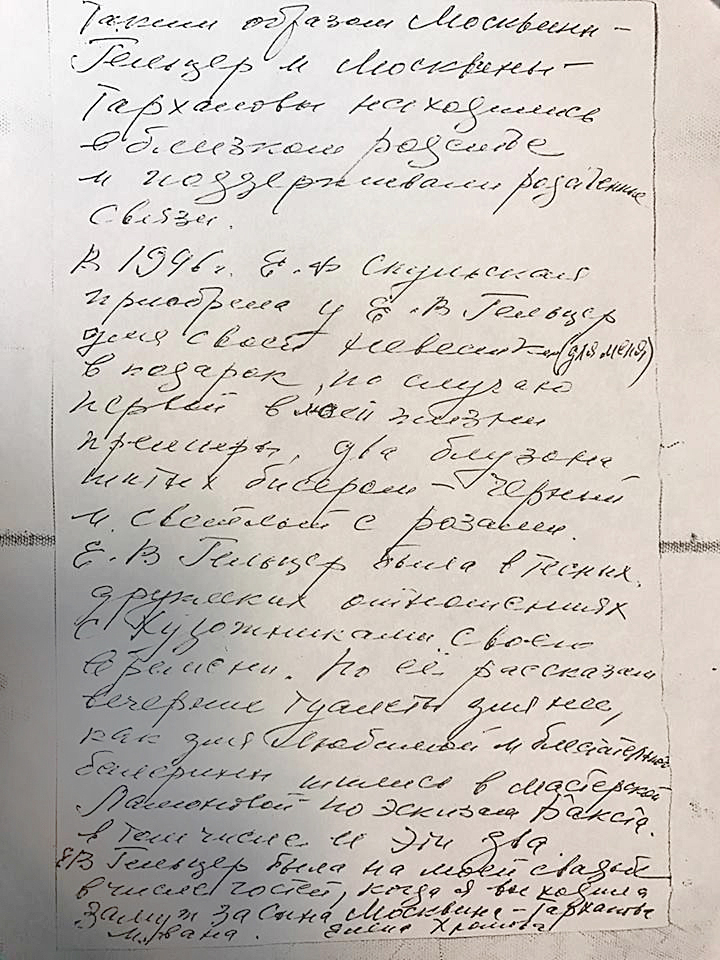 Таким образом Москвины-
Гельцер и Москвины-
Тархановы находились
в близком родстве
и поддерживали родственные
связи.
В 1946г. Е.Ф Скульская
приобрела у Е.В Гельцер
для своей невестки (для меня)
в подарок, по случаю
первой в моей жизни
премьеры, два блузона
шитых бисером - черный
и светлый с розами.
Е.В Гельцер была в тесных
дружеских отношениях
с художниками своего
времени. По её рассказам
вечерние туалеты для нее,
как для любимой и блистательной
балерины шились в мастерской
Ламоновой по эскизам Бакста.
в том числе и эти два
ЕВ Гельцер была на моей свадьбе
в числе гостей, когда я выходила
замуж за сына Москвина-Тарханова
Ивана. Елена Хромова